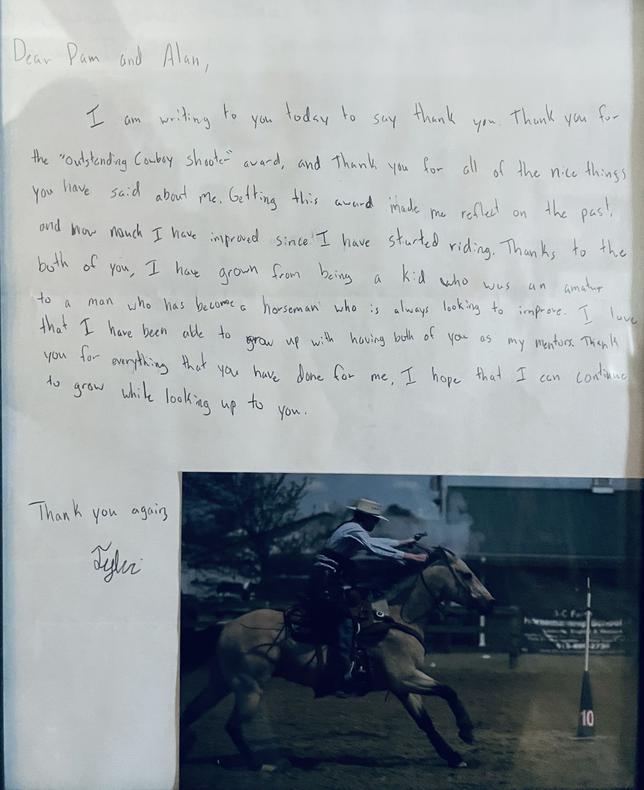 Dear Pam and Alan,
I am writing to you today to say thank you. Thank you for
the "Outstanding Cowboy shooter" award, and Thank you for all of the nice things
you have said about me. Getting this award made me reflect on the past,
and how much I have improved since I have started riding. Thanks to the
both of you, I have grown from being a kid who was an amatur
to a man who has become a horseman who is always looking to improve. I love
that I have been able to grow up with having both of you as my mentors. Thank
you for everything that you have done for me, I hope that I can continue
to grow while looking up to you.
Thank you again,
Tyler
10